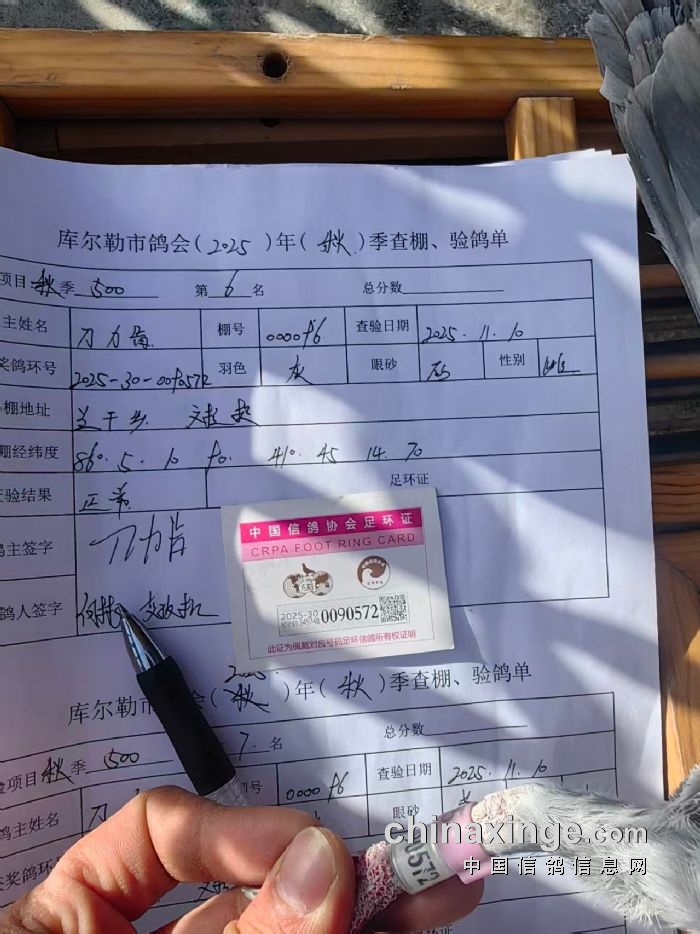 库尔勒市鸽会(2025)年(秋)季查棚、验鸽单
项目 秋季 500 第 6 名 总分数
主姓名 刀力肯 棚号 0000 查验日期 2025.11.10
奖鸽环号 2025-30- 羽色 灰 眼砂 性别 雄
棚地址 兰干乡
棚经纬度 86° 5. 10 41° 45 14. 70
查验结果 正常 足环证
鸽主签字 刀力肯
鸽人签字
中国信鸽协会足环证
CRPA FOOT RING CARD
2025-30 0090572
此证为佩戴对应号码足环信鸽所有权证明
库尔勒市鸽会(2025)年(秋)季查棚、验鸽单
验项目 秋季 500 7. 名 总分数
鸽主姓名 刀 棚号 0000 查验日期 2025.11.10
奖鸽环号 眼砂
0572
足环证
chinaxinge.com
中国信鸽信息网